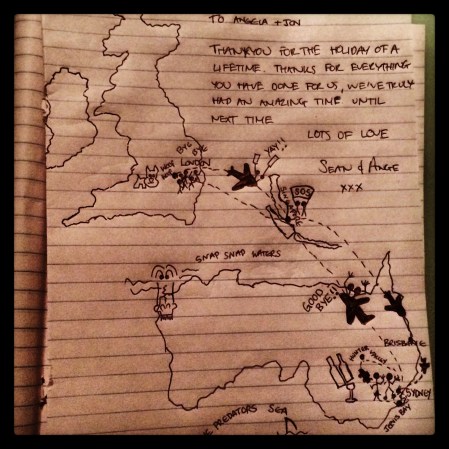 TO ANGELA + JON
THANKYOU FOR THE HOLIDAY OF A
LIFETIME. THANKS FOR EVERYTHING
YOU HAVE DONE FOR US, WE'VE TRULY
HAD AN AMAZING TIME UNTIL
NEXT TIME
LOTS OF LOVE
SEAN & ANGE
xxx
BYE BYE
WOOF
LONDON
YAY!!
SOS
SNAP SNAP WATERS
GOOD
BYE!!
BRISBANE
HUNTER VALLEY
SYDNEY
JERVIS BAY
PREDATORS SEA